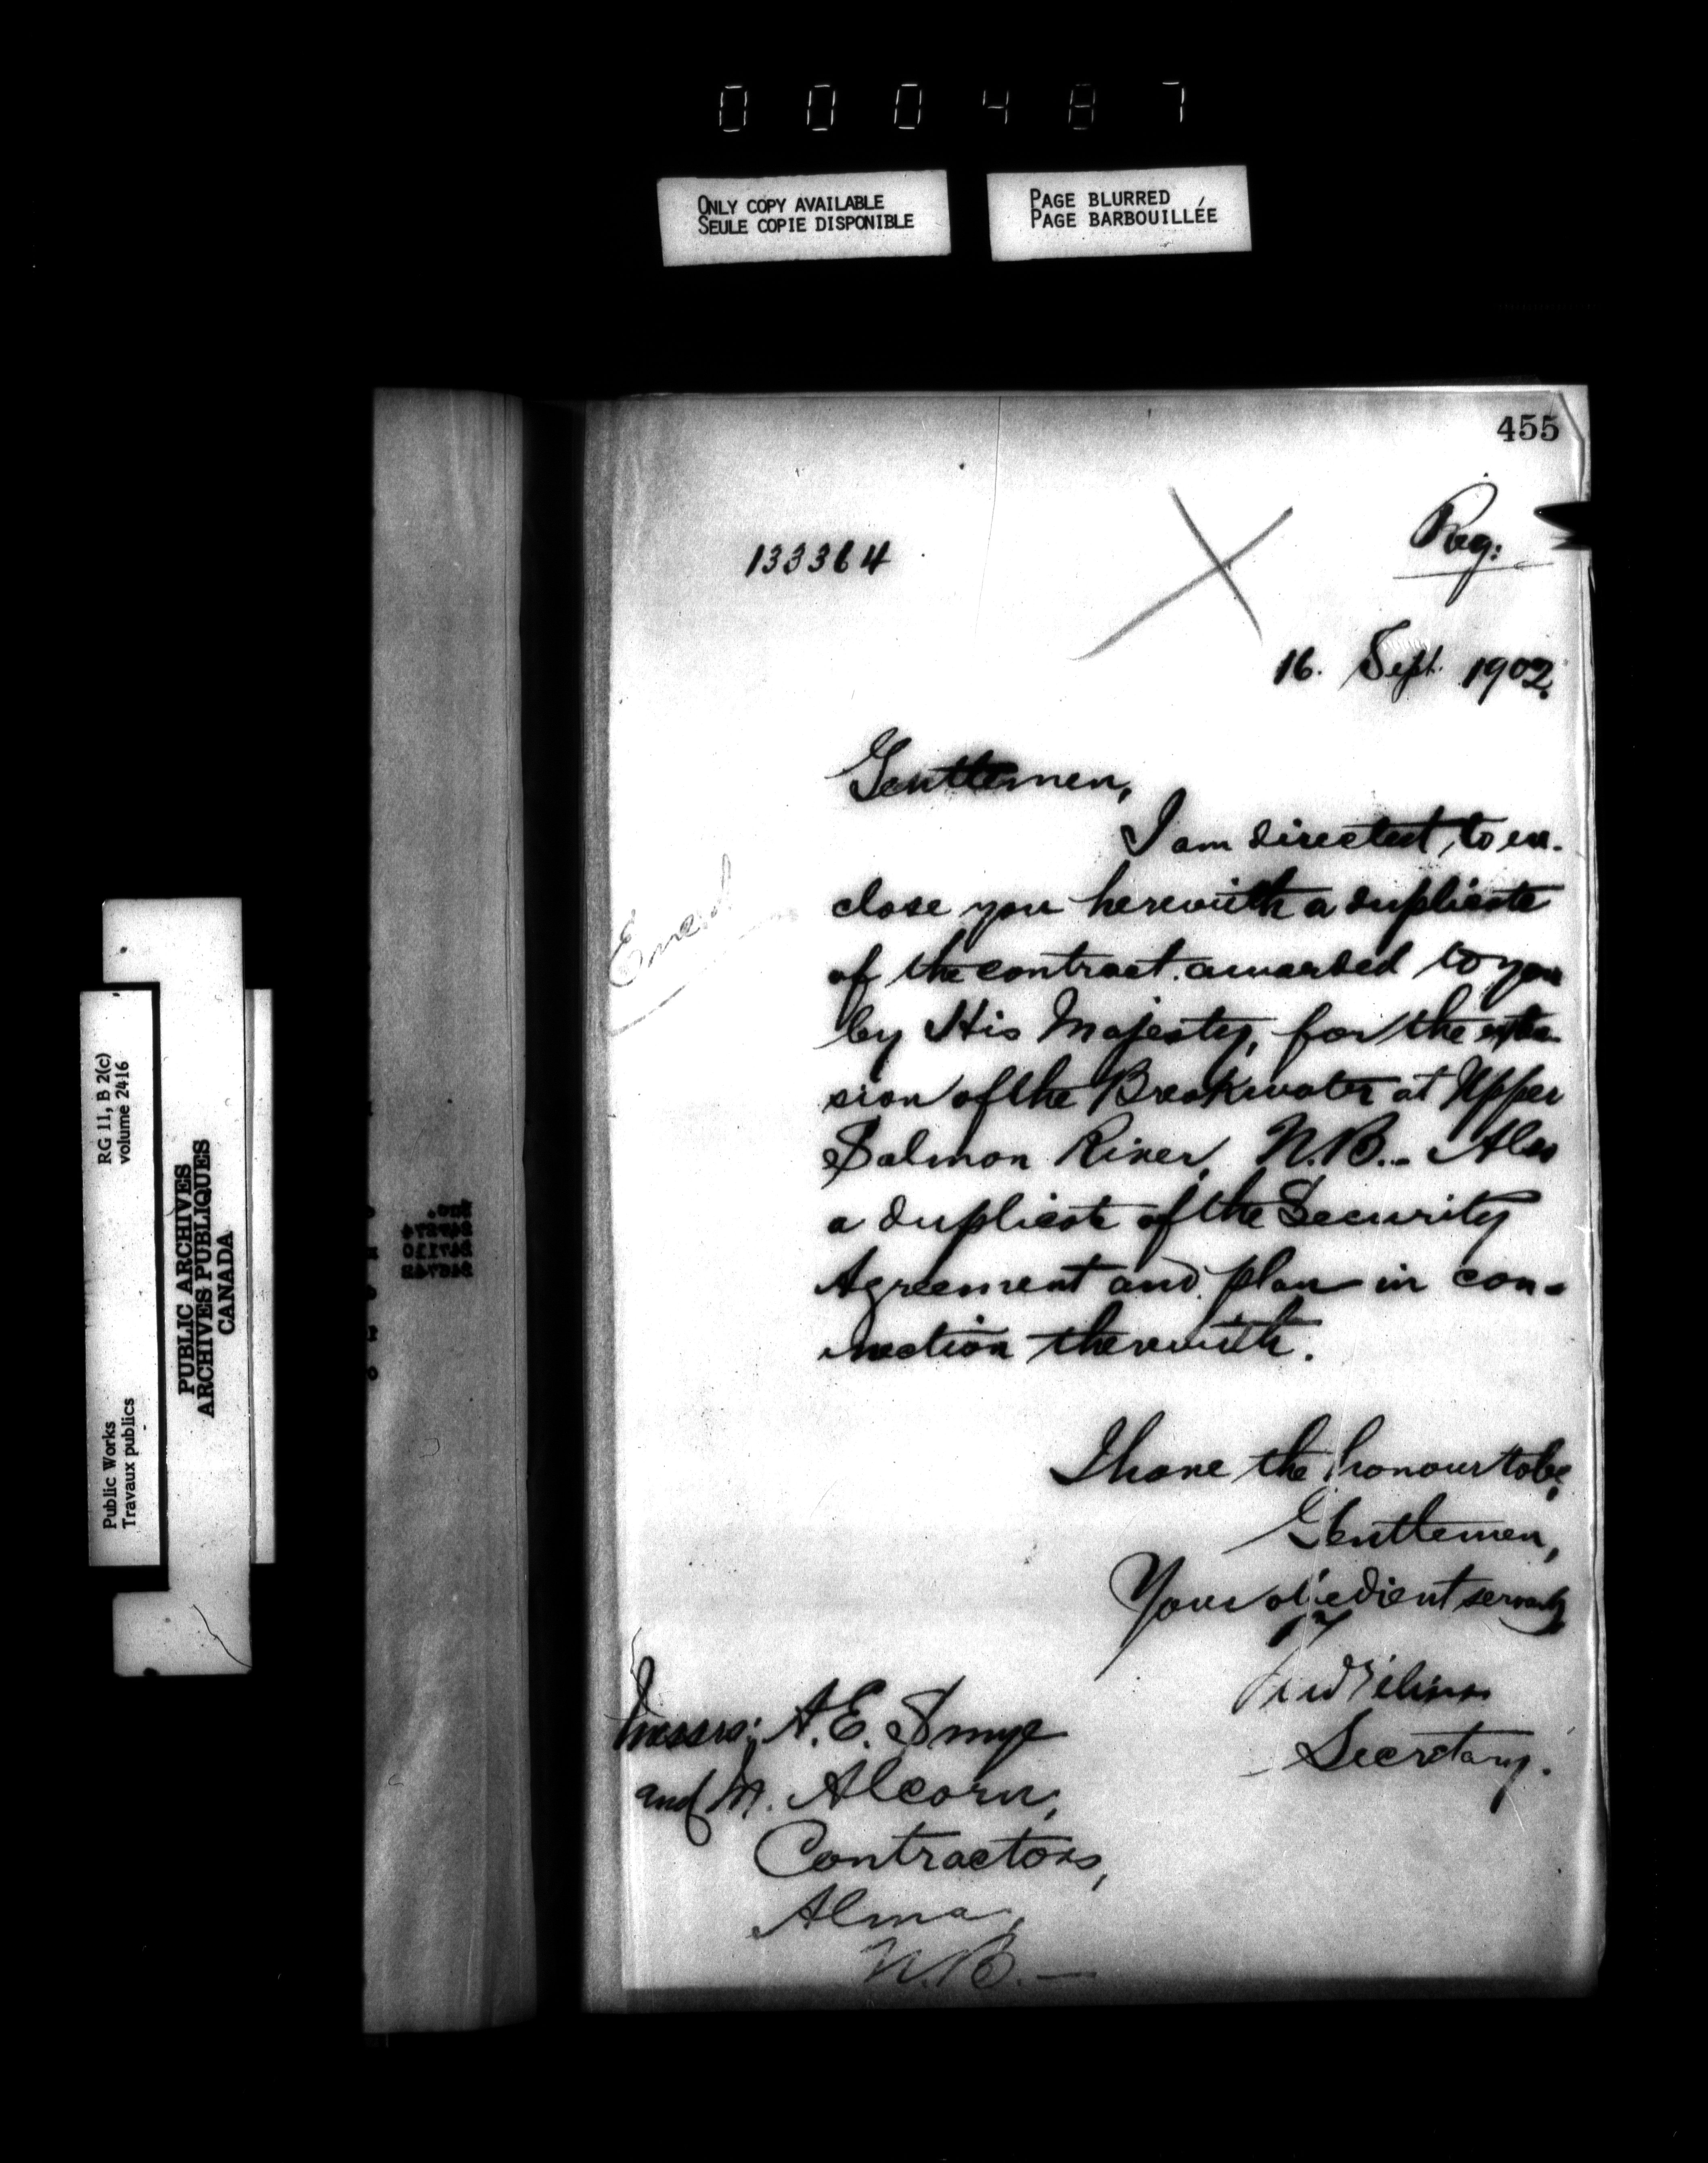 000487
ONLY COPY AVAILABLE
SEULE COPIE DISPONIBLE
PAGE BLURRED
PAGE BARBOUILLÉE
455
Reg:
133364
16. Sept. 1902.
Gentlemen,
I am directed, to en-
close you herewith a duplicate
of the contract awarded to you
by His Majesty, for the exten-
sion of the Breakwater at Upper
Salmon River, N.B.- Also
a duplicate of the Security
Agreement and plan in con-
nection therewith.
I have the honour to be,
Gentlemen,
Your obedient servant,
Secretary.
Messrs: A. E. Smye
and M. Alcorn,
Contractors,
Alma,
N.B.-
RG 11, B 2(c)
volume 2416
Public Works
Travaux publics
PUBLIC ARCHIVES
ARCHIVES PUBLIQUES
CANADA